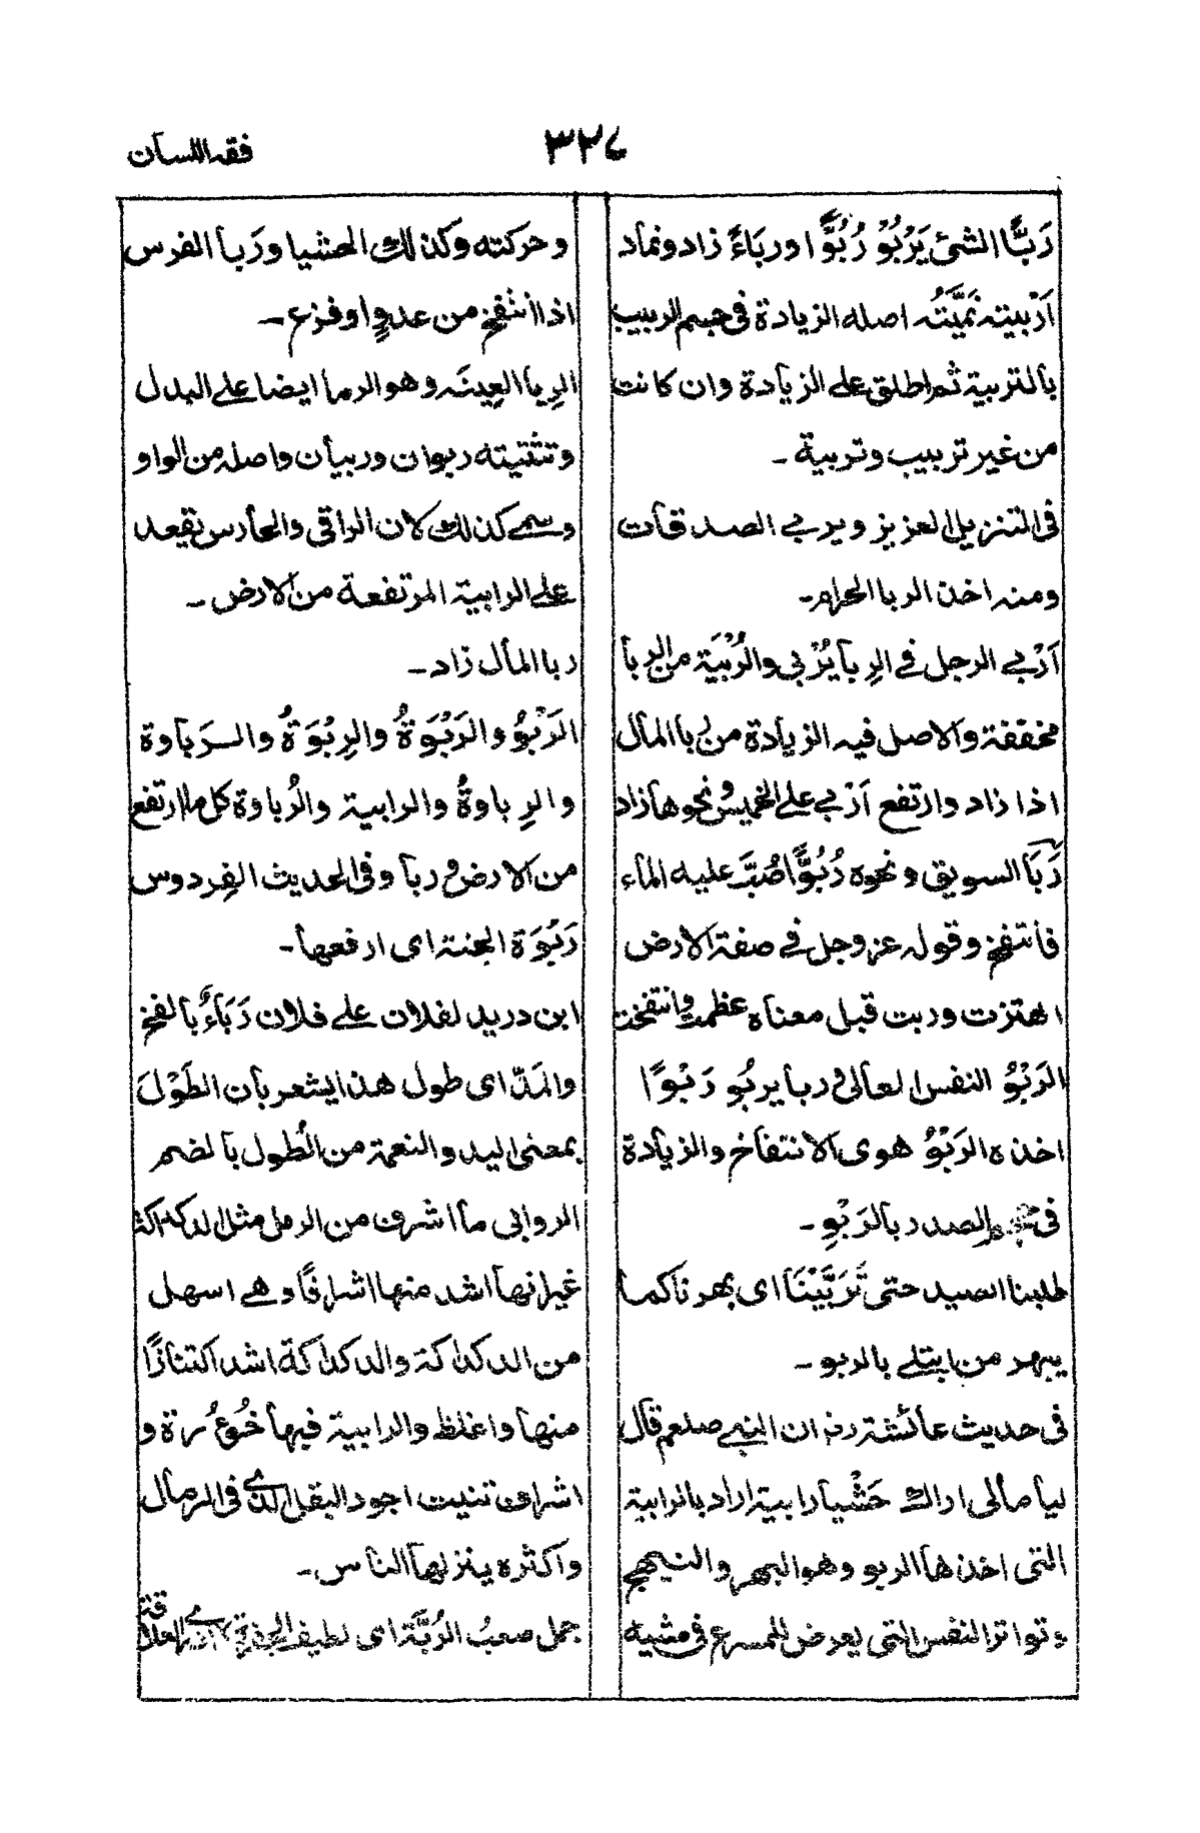 فقه اللسان
٣٢٤
رَبَّا الشئ يَرْبُوْ رُبُوًّا ورِبَاءً زاد ونماد
اَرْبيته نَمَّيْتُه اصله الزيادة فى جسم الربيب
بالتربية ثم اطلق على الزيادة وان كانت
من غير تربيب وتربية ـ
فى التنزيل العزيز ويربے الصدقات
ومنه اخذ الربا الحرام ـ
اَرْبے الرجل فے الرِبا يُرْبى والرُبْيَة من الرِبا
مخففة والاصل فيه الزيادة من ربا المال
اذا زاد وارتفع اَرْبے على الخميس ونحوها زاد
رَبَا السويق ونحوه رُبُوًّا صُبَّ عليه الماء
فانتفخ وقوله عز وجل فے صفة الارض
اهتزت وربت قيل معناه عظمت وانتفخت
الرَبْوُ النفس العالى و ربا يربُو رَبْوًا
اخذه الرَبْوُ هوى الانتفاخ والزيادة
فى الصدر بالرَبْوِ ـ
طلبنا الصيد حتى تَرَبَّيْنَا اى بهرنا كما
يبهر من ابتلے بالربو ـ
فى حديث عائشة رض ان النبے صلعم قال
ليا مالى اراك حَشْيا رابية اراد بالرابية
التى اخذها الربو وهو البهر والنيهج
وتواتر النفس التى يعرض للمسرع فى مشيه
وحركته وكذلك الحشيا ورَبا الفرس
اذا انتفخ من عدوٍ او فزع ـ
الرِبا العِينَه وهو الرما ايضا على البدل
وتثنيته ربوان وربيان واصله من الواو
وسمے كذلك لان الراقى والحارس يقعد
على الرابية المرتفعة من الارض ـ
ربا المال زاد ـ
الرَبْوُ والرَبْوَةُ والرِبْوَةُ والرَباوة
والرِباوةُ والرابية والرُباوة كل ما ارتفع
من الارض و ربا وفى الحديث الفِردوس
رَبْوَة الجنة اى ارفعها ـ
ابن دريد لفلان على فلان رَبَاءٌ بالفتح
والمَدّ اى طول هذا يشعر بان الطَوْلَ
بمعنى اليد والنعمة من الطُول بالضم
الروابى ما اشرف من الرمل مثل الدكداكة
غير انها اشد منها اشرافًا وهے اسهل
من الدكداكة والدكداكة اشد اكتنازًا
منها واغلظ والرابية فيها خُؤُرة و
اشراف تنبت اجود البقل الذے فى الرمال
واكثره ينزلها الناس ـ
جمل صعبُ الرُبَّة اى لطيف الجفرة